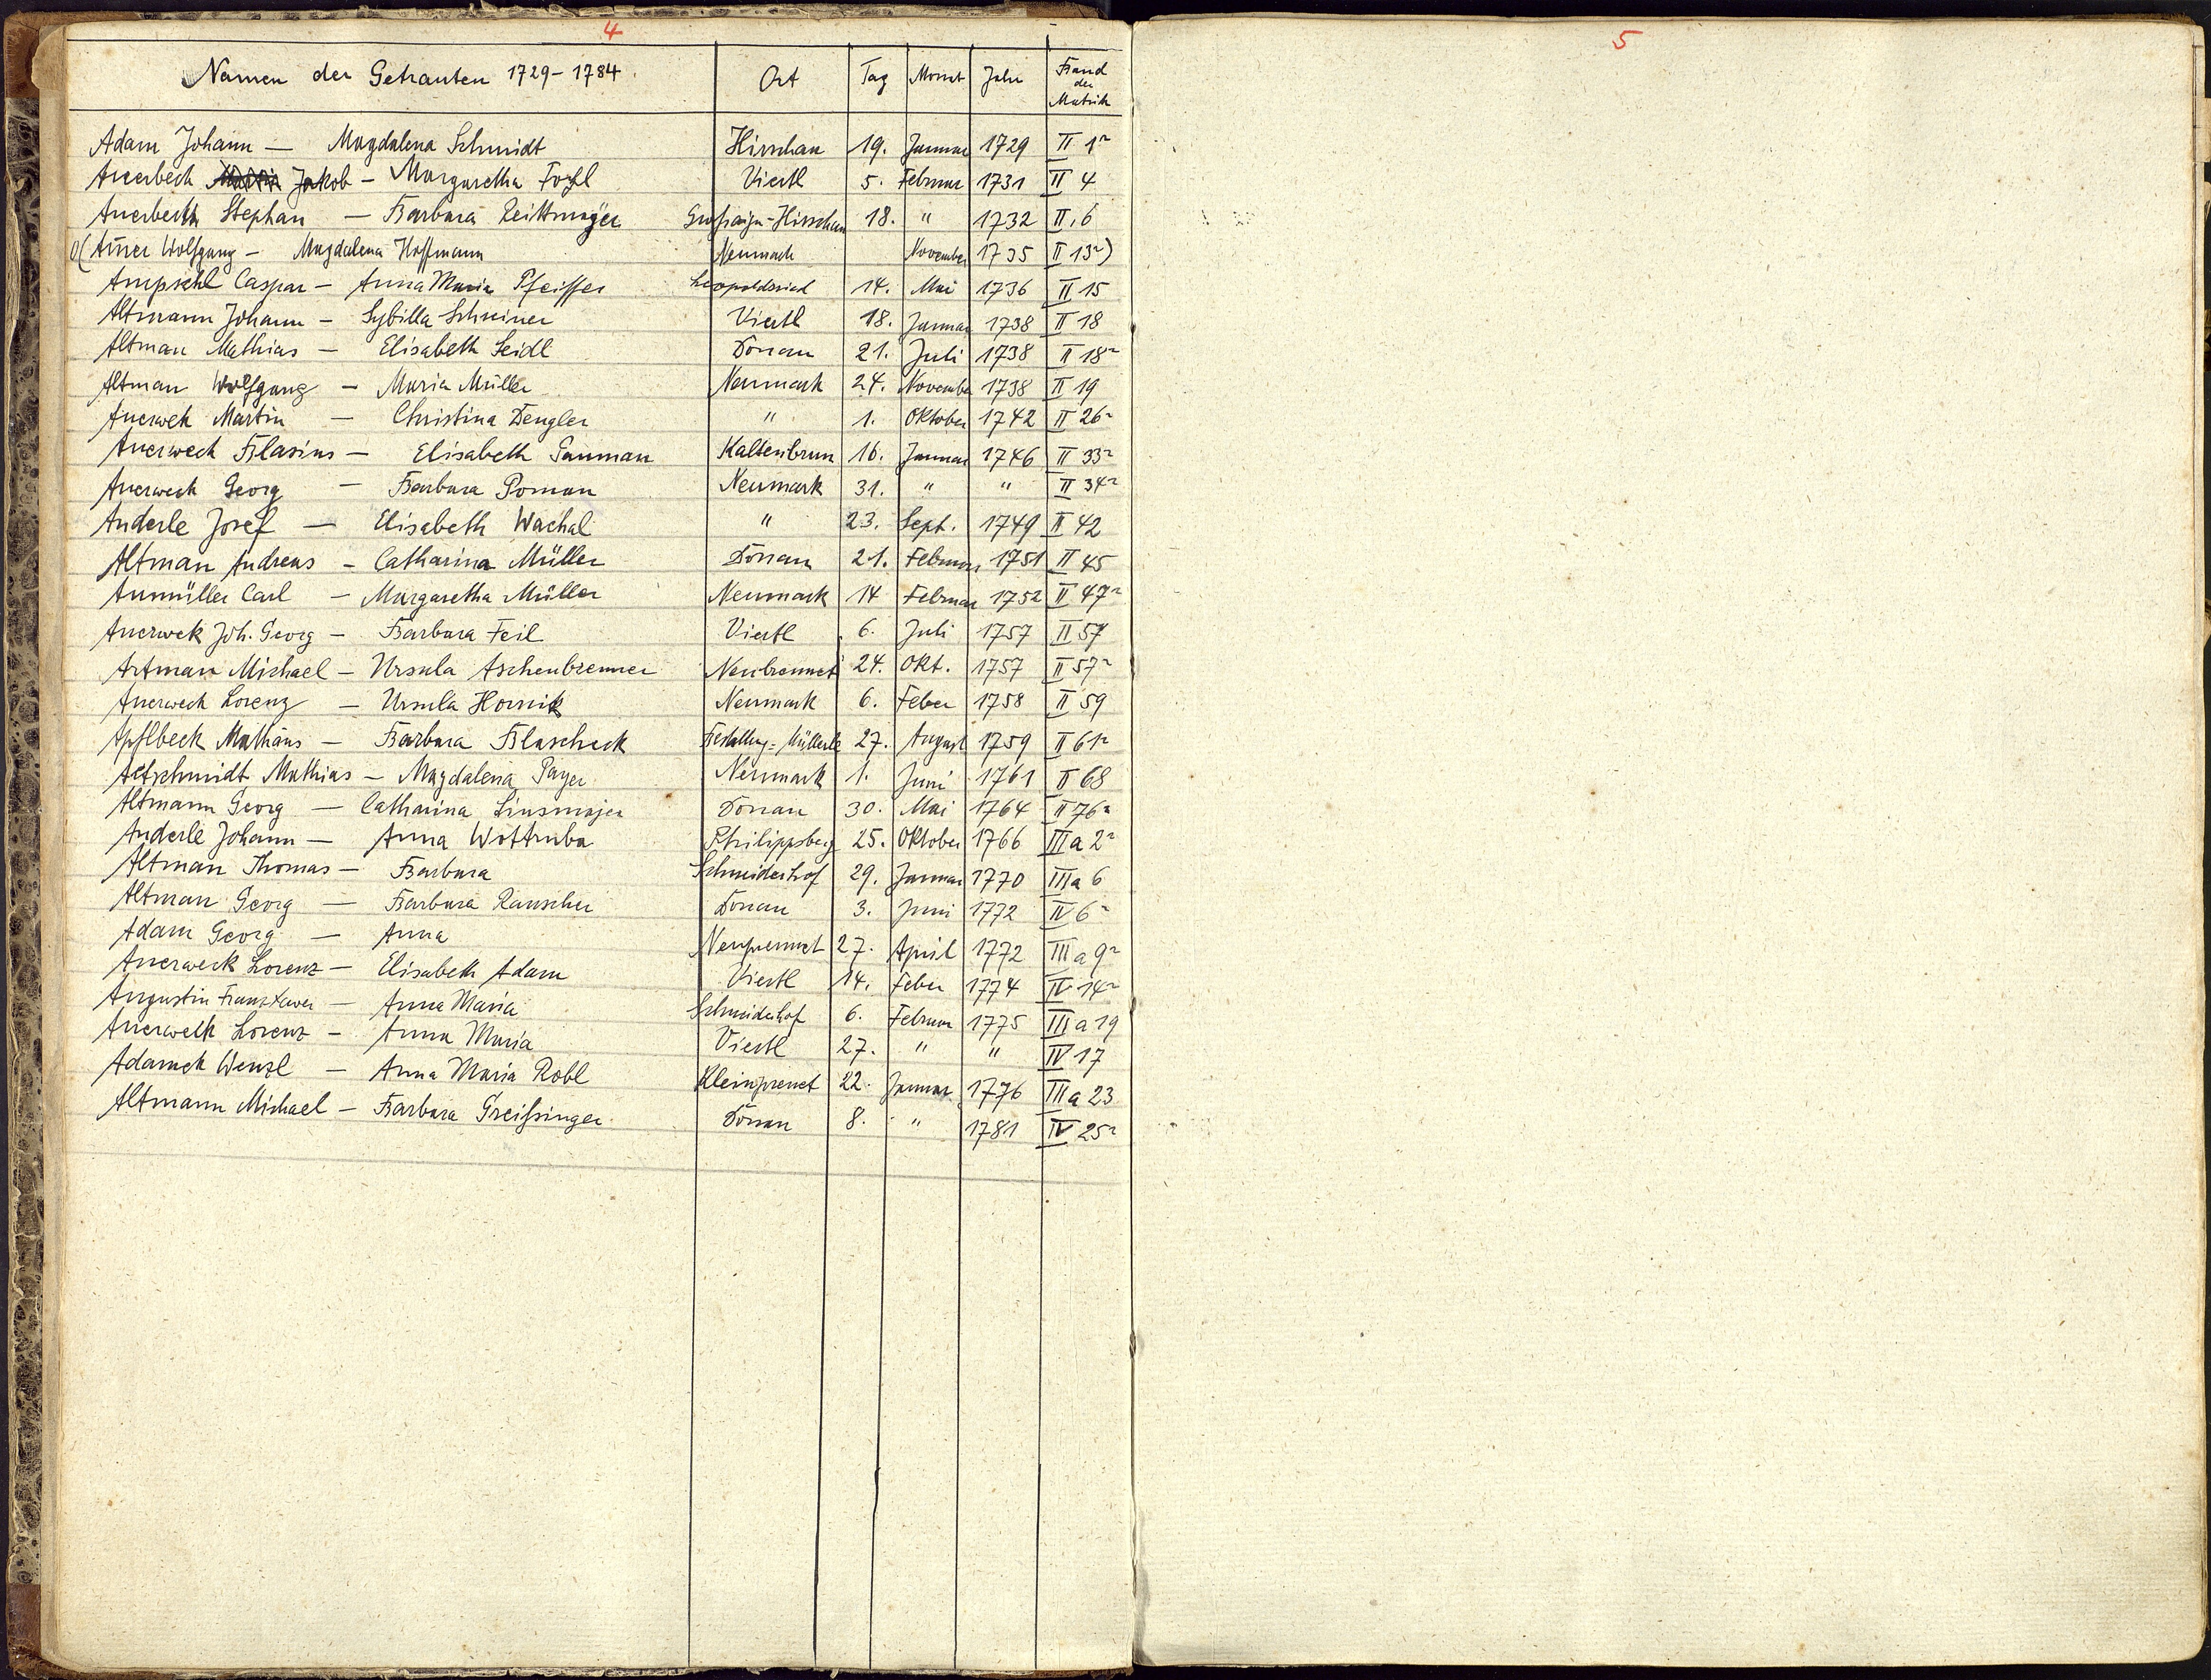 4
Namen der Getrauten 1729-1784. Ort Tag Monat Jahr Band der Matrik
Adam Johann — Magdalena Schmidt Hirschau 19. Januar 1729 II 1r
Auerbeck Jakob - Margaretha Voyl Viertl 5. Februar 1731 II 4
Auerbeck Stephan — Barbara Reittmayer Großaign-Hirschau 18. " 1732 II, 6
(Auer Wolfgang — Magdalena Hoffmann Neumark November 1735 II 13r)
Ampichl Caspar — Anna Maria Pfeiffer Leopoldsried 14. Mai 1736 II 15
Altmann Johann — Sybilla Schreiner Viertl 18. Januar 1738 II 18
Altman Mathias — Elisabeth Seidl Donau 21. Juli 1738 II 18r
Altman Wolfgang — Maria Müller Neumark 24. November 1738 II 19
Auerwek Martin — Christina Dengler " 1. Oktober 1742 II 26r
Auerweck Blasius — Elisabeth Bauman Kaltenbrun 16. Januar 1746 II 33r
Auerweck Georg — Barbara Poman Neumark 31. " " II 34r
Anderle Josef — Elisabeth Wachal " 23. Sept. 1749 II 42
Altman Andreas — Catharina Müller Donau 21. Februar 1751 II 45
Aumüller Carl — Margaretha Müller Neumark 14 Februar 1752 II 47r
Auerwek Joh. Georg — Barbara Feil Viertl 6. Juli 1757 II 57
Artman Michael — Ursula Aschenbrenner Neubrennet 24. Okt. 1757 II 57r
Auerweck Lorenz — Ursula Hornik Neumark 6. Feber 1758 II 59
Apflbeck Mathäus — Barbara Blascheck 27. August 1759 II 61r
Altschmidt Mathias — Magdalena Payer Neumark 1. Juni 1761 II 68
Altmann Georg — Catharina Linsmajer Donau 30. Mai 1764 II 76r
Anderle Johann — Anna Wottruba Philippsberg 25. Oktober 1766 IIIa 2r
Altman Thomas — Barbara Schneiderhof 29. Januar 1770 IIIa 6
Altman Georg — Barbara Rauscher Donau 3. Juni 1772 IV 6r
Adam Georg — Anna Neuprennet 27. April 1772 IIIa 9r
Auerweck Lorenz — Elisabeth Adam Viertl 14. Feber 1774 IV 14r
Augustin Franz Xaver — Anna Maria Schneiderhof 6. Februar 1775 IIIa 19
Auerweck Lorenz — Anna Maria Viertl 27. " " IV 17
Adamek Wenzl — Anna Maria Robl Kleinprenet 22. Januar 1776 IIIa 23
Altmann Michael — Barbara Greißinger Donau 8. " 1781 IV 25r
5